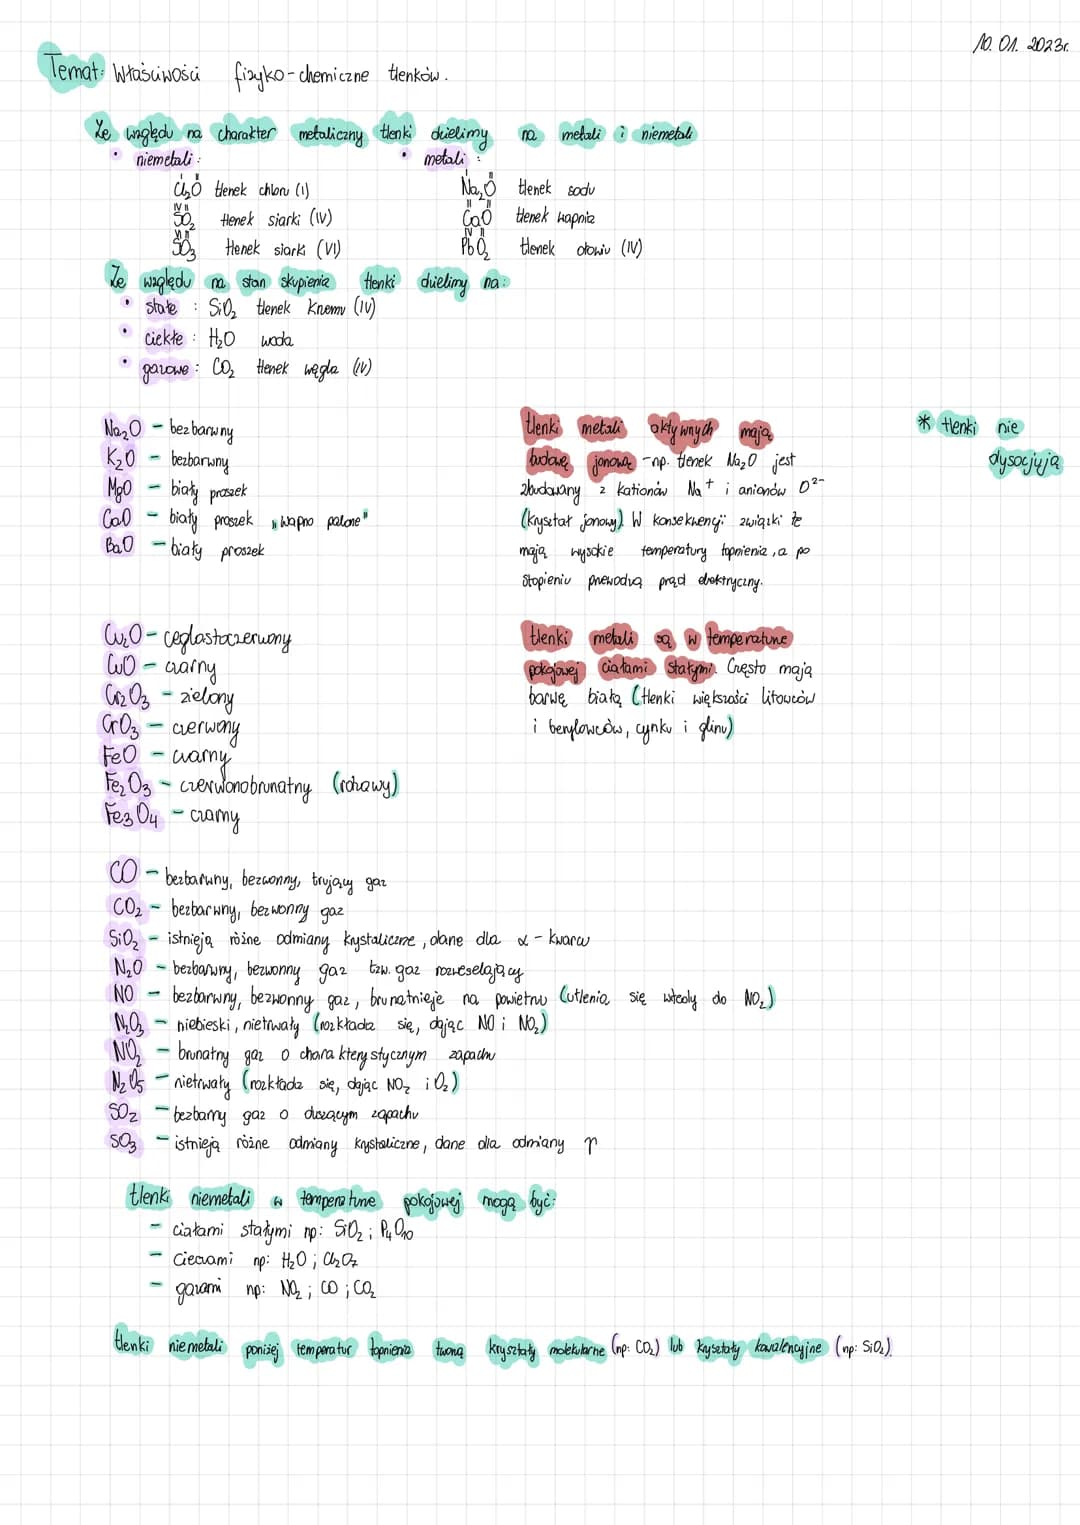 10. 01. 2023r.
Temat: Właściwości fizyko-chemiczne tlenków.
Ze względu na charakter metaliczny tlenki dzielimy na metali i niemetali
• niemetali :
• metali :
I II
Cl₂O tlenek chloru (I)
I II
Na₂O tlenek sodu
IV II
SO₂ tlenek siarki (IV)
II II
CaO tlenek wapnia
VI II
SO₃ tlenek siarki (VI)
IV II
PbO₂ tlenek ołowiu (IV)
Ze względu na stan skupienia tlenki dzielimy na:
• stałe : SiO₂ tlenek krzemu (IV)
• ciekłe : H₂O woda
• gazowe : CO₂ tlenek węgla (IV)
Na₂O - bezbarwny
K₂O - bezbarwny
MgO - biały proszek
CaO - biały proszek „wapno palone"
BaO - biały proszek
tlenki metali aktywnych mają
budowę jonową - np. tlenek Na₂O jest
zbudowany z kationów Na⁺ i anionów O²⁻
(kryształ jonowy). W konsekwencji związki te
mają wysokie temperatury topnienia, a po
stopieniu przewodzą prąd elektryczny.
* tlenki nie
dysocjują
Cu₂O - ceglastoczerwony
CuO - czarny
Cr₂O₃ - zielony
CrO₃ - czerwony
FeO - czarny
Fe₂O₃ - czerwonobrunatny (rdzawy)
Fe₃O₄ - czarny
tlenki metali są w temperaturze
pokojowej ciałami stałymi. Często mają
barwę białą (tlenki większości litowców
i berylowców, cynku i glinu)
CO - bezbarwny, bezwonny, trujący gaz
CO₂ - bezbarwny, bezwonny gaz
SiO₂ - istnieją różne odmiany krystaliczne, dane dla α - kwarcu
N₂O - bezbarwny, bezwonny gaz tzw. gaz rozweselający
NO - bezbarwny, bezwonny gaz, brunatnieje na powietrzu (utlenia się wtedy do NO₂)
N₂O₃ - niebieski, nietrwały (rozkłada się, dając NO i NO₂)
NO₂ - brunatny gaz o charakterystycznym zapachu
N₂O₅ - nietrwały (rozkłada się, dając NO₂ i O₂)
SO₂ - bezbarny gaz o duszącym zapachu
SO₃ - istnieją różne odmiany krystaliczne, dane dla odmiany γ
tlenki niemetali w temperaturze pokojowej mogą być:
- ciałami stałymi np: SiO₂ ; P₄O₁₀
- cieczami np: H₂O ; Cl₂O₇
- gazami np: NO₂ ; CO ; CO₂
tlenki niemetali poniżej temperatur topnienia tworzą kryształy molekularne (np: CO₂) lub kryształy kowalencyjne (np: SiO₂).